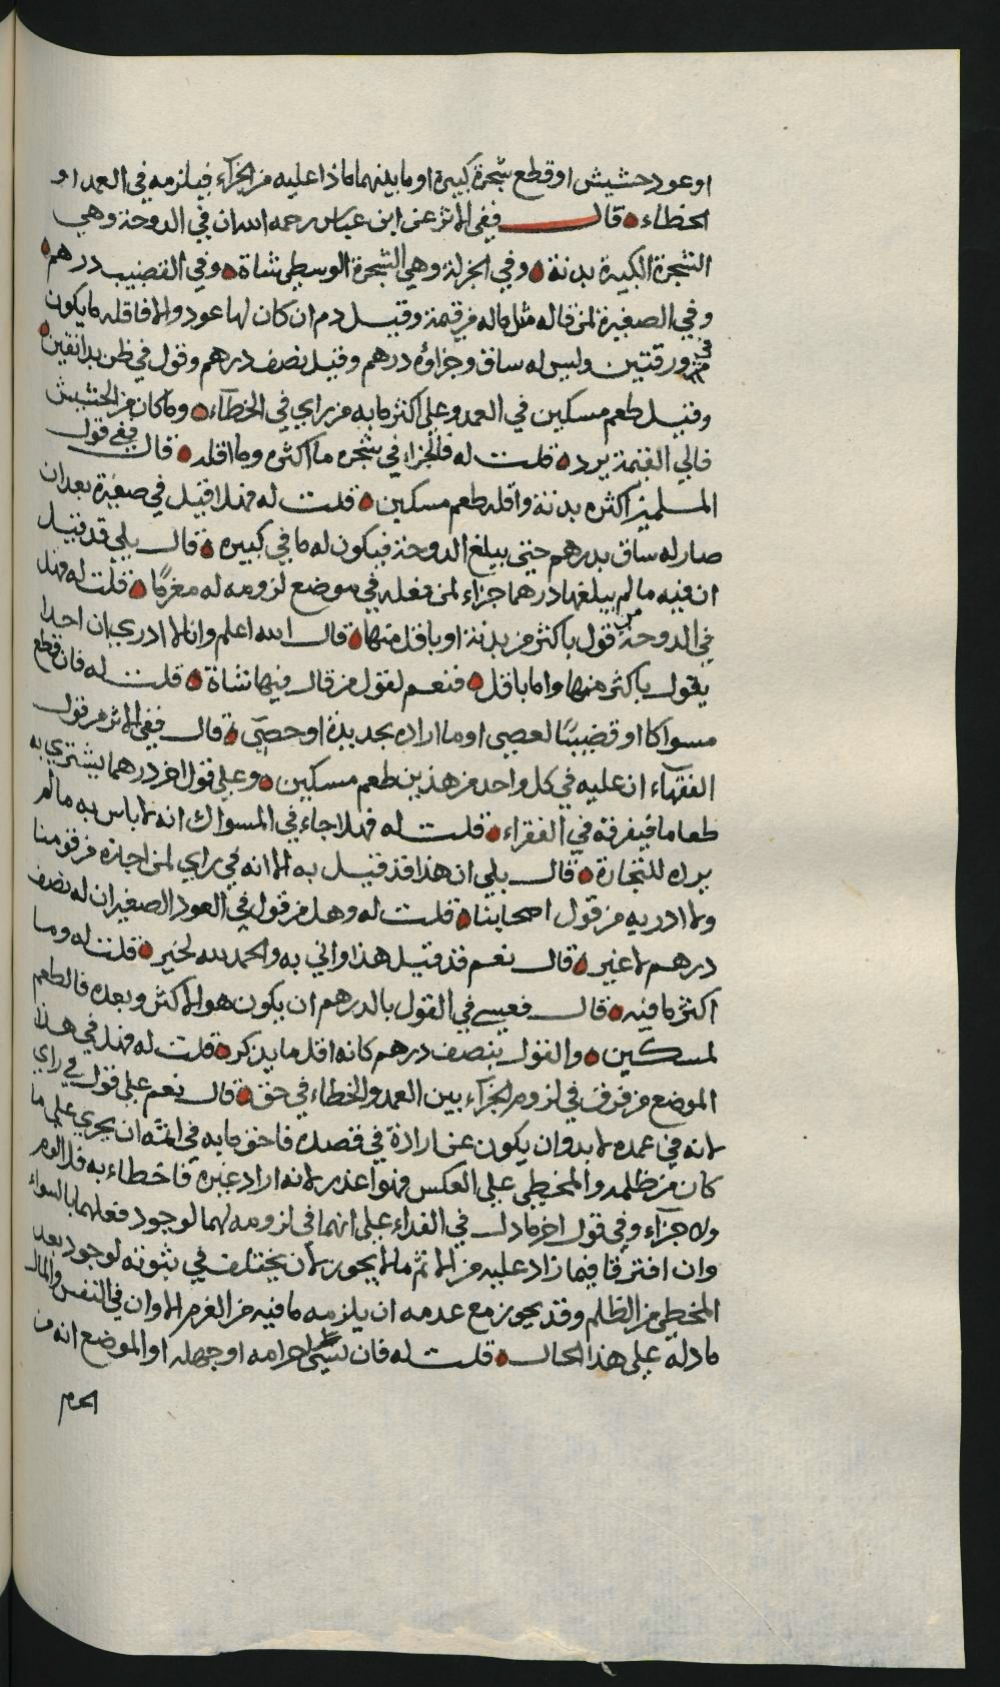 او عود حشيش او قطع شجرة كبيرة او ما بينهما ماذا عليه من الجزآء فيلزمه في العمد او
الخطاء قال ففي الاثر عن ابن عباس رحمه الله ان في الدوحة وهي
الشجرة الكبيرة بدنة وفي الجزلة وهي الشجرة الوسطى شاة وفي القضيب درهم
وفي الصغيرة لمن قاله مثل ماله من قيمة وقيل دم ان كان لها عود والا فاقله ما يكون
من ورقتين وليس له ساق وجزاؤه درهم وقيل نصف درهم وقول في ظن بدانقين
وقيل طعم مسكين في العمد وعلى اكثر ما به من راي في الخطآء وما كان من الحشيش
فالي القيمة يرد قلت له فالجزاء في شجره ما اكثره وما اقله قال ففي قول
المسلمين اكثره بدنة واقله طعم مسكين قلت له فهلا قيل في صغيرة بعد ان
صار له ساق بدرهم حتى يبلغ الدوحة فيكون له ما في كبيره قال بلى قد قيل
ان فيه ما لم يبلغها درهما جزاء لمن فعله في موضع لزومه له مغرمًا قلت له فهل
في الدوحة من قول باكثر من بدنة او باقل منها قال الله اعلم وانا لا ادري ان احدا
يقول باكثر منها واما باقل فنعم لقول من قال فيها بشاة قلت له فان قطع
مسواكا او قضيبًا لعصى او ما اراده بحديدة او حصى قال ففي الاثر من قول
الفقهآء ان عليه في كل واحد من هذين طعم مسكين وعلى قول اخر درهما يشتري به
طعاما فيفرقه في الفقراء قلت له فهلا جاء في المسواك انه لا باس به ما لم
يرده للتجارة قال بلى ان هذا قد قيل به الا انه في راي لمن اجازه من قومنا
ولا ادريه من قول اصحابنا قلت له وهل من قول في العود الصغير ان له نصف
درهم لا غير قال نعم قد قيل هذا واني به والحمد لله لخبير قلت له وما
اكثر ما فيه قال فعسى في القول بالدرهم ان يكون هو الاكثر وبعده فالطعم
لمسكين والقول بنصف درهم كانه اقل ما يذكر قلت له فهل في هذا
الموضع من فرق في لزوم الجزآء بين العمد والخطاء في حق قال نعم على قول في راي
لانه في عمده لا بد وان يكون عن ارادة في قصده فاحق ما به في اثمه ان يجري على ما
كان من ظلمه والمخطي على العكس فهو اعذر لانه اراد غيره فاخطاء به فلا لوم
ولا جزاء وفي قول اخر ما دل في الفداء على انهما في لزومه لهما لوجود فعلهما بالسواء
وان افترقا فيما زاد عليه من الاثم ما لا يجوز لان يختلف في ثبوته لوجود بعد
المخطي من الظلم وقد يجوز مع عدمه ان يلزمه ما فيه من الغرم الا وان في النفس والمال
ما دله على هذا الحال قلت له فان نسي احرامه او جهله او الموضع انه من
الحرم